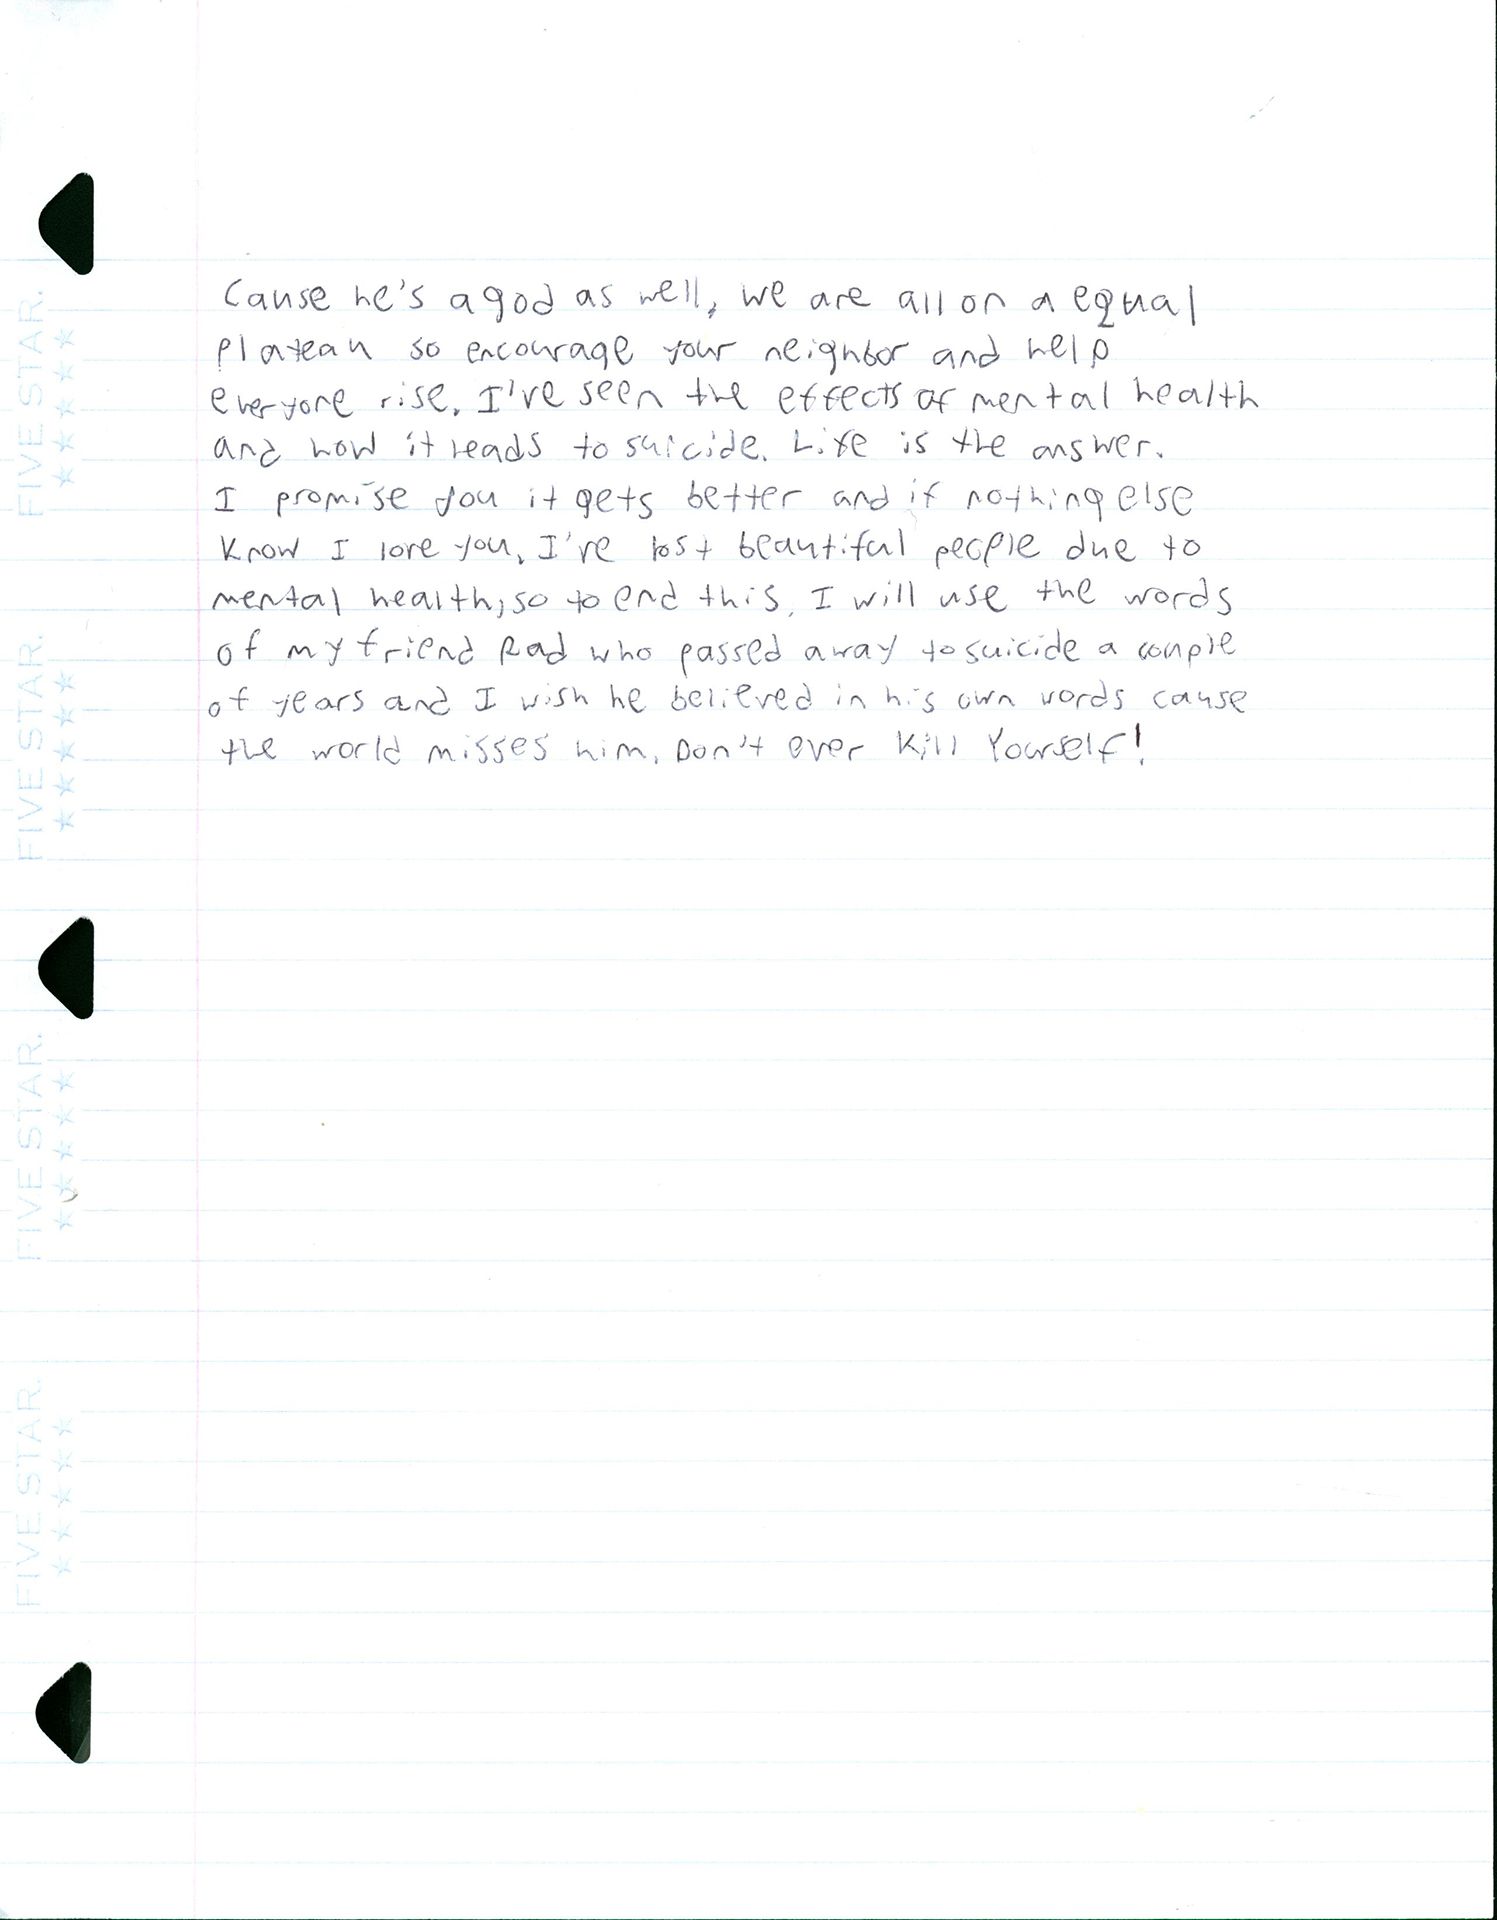 Cause he's a god as well, we are all on a equal
plateau so encourage your neighbor and help
everyone rise. I've seen the effects of mental health
and how it leads to suicide. Life is the answer.
I promise you it gets better and if nothing else
Know I love you. I've lost beautiful people due to
mental health, so to end this, I will use the words
of my friend Rad who passed away to suicide a couple
of years and I wish he believed in his own words cause
the world misses him. Don't ever Kill Yourself!
FIVE STAR.
FIVE STAR.
FIVE STAR.
FIVE STAR.